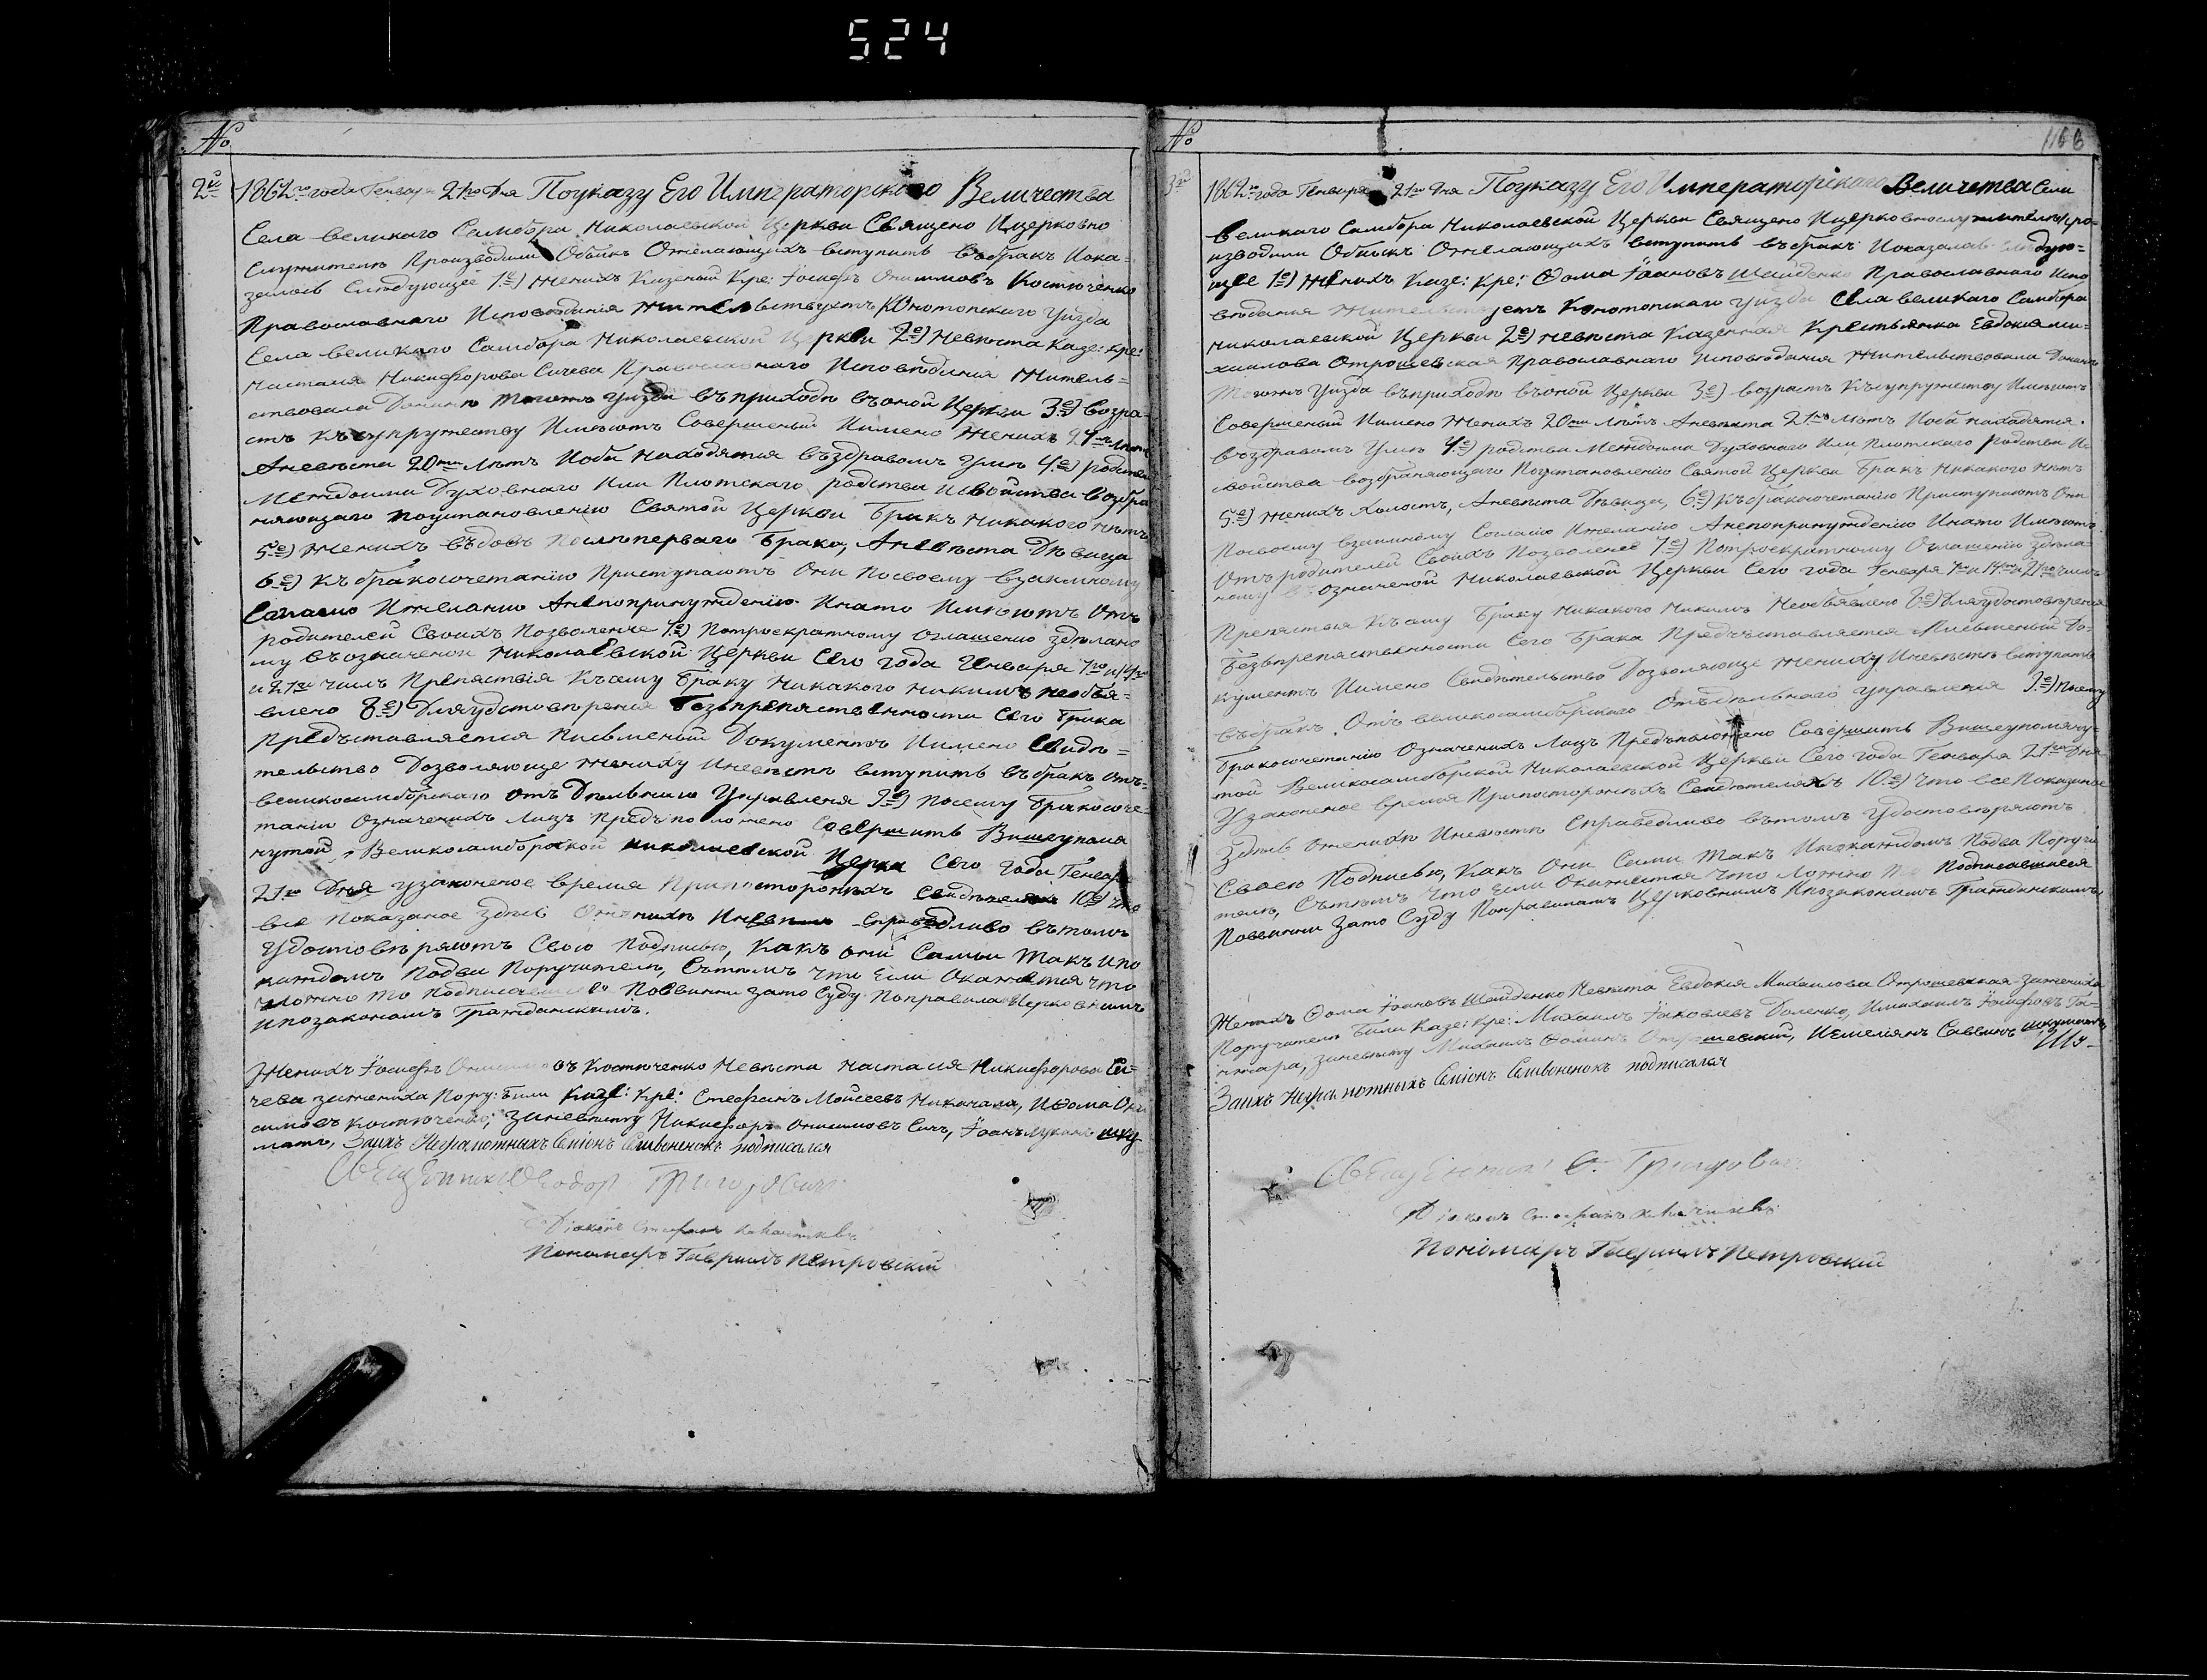 524
№
2й 1862го года Генваря 21го Дня Поуказу Его Императорскаго Величества
Села великаго Самбора Николаевской Церкви Священо Ицерковно
Служителы Производили Обыкъ Ожелающихъ вступить въбракъ Ипока=
залось Слѣдующее 1е) Женихъ Казеный Кре: Іосифъ Онисимовъ Костюченко
Православнаго Исповѣданія жительствуетъ Конотопскаго Уѣзда
Села великаго Самбора Николаевской Церкви 2е) Невѣста Казе: кре:
Настасія Никифорова Сичева Православнаго Исповѣданія житель=
ствовала Донинѣ Тогожъ уѣзда въприходѣ въоной Церкви 3е) возра
стъ Къ супружеству Имѣютъ Совершеный Имено Женихъ лѣтъ
Аневѣста 20ти лѣтъ Иоба находятся въздравомъ Умѣ 4е) родства
Междоими Духовнаго Или Плотскаго родства исвойства возбра
няющаго поустановленію Святой Церкви Бракъ никакого нѣтъ
5е) женихъ въдовъ послѣперваго Брака, Аневѣста Дѣвица
6е) Къ бракосочетанію Приступаютъ Они Посвоему взаимному
Согласію Ижеланію Анепопринужденію Инато Имѣютъ Отъ
родителей Своихъ Позволение 7е) Потроекратному оглашенію здѣлано
му въозначеной Николаевской Церкви Сего года Генваря 7го и 14го
и 21го числъ Препяствія Къ сему Браку Никакого никимъ необъя=
влено 8е) Дляудостовѣренія безъпрепяственности Сего Брака
Предъставляется Письменый Документъ Имено Свидѣ=
тельство Дозволяюще жениху Иневѣстѣ вступить въбракъ отъ
великосамборскаго отъДѣльнаго Управленія 9е) Посему Бракосоче
танію Означенихъ Лицъ предъположено Совершить Вишеупомя
нутой Великосамборской николаевской Церкви Сего года Генваря
21го Дня узаконеное время Припосторонихъ Свидѣтеляхъ 10е) что
все Показаное здѣсь Ожених� Иневѣстѣ Справедливо въ томъ
Удостовѣряютъ Своею Подписью, Какъ они Сами Такъ ипо
каждомъ Подва Поручителя, Сътѣмъ что Если Окажется что
ложно то подписавшиеся Повинни зато Суду Поправиламъ Церковнимъ
ипозаконамъ Гражданскимъ.
Женихъ Іосифъ Онисимовъ Костюченко Невѣста Настасія Никифорова Си=
чева зажениха Пору: Били Казе: Кре: Стефанъ Моисеевъ Никачала, Иѳома Они
симовъ Костюченко, заневѣсту Никифоръ Онисимовъ Сичъ, Іоанъ Лукинъ Шку
матъ, Заихъ Неграмотныхъ Семіонъ Селивоненокъ подписался
Священникъ Ѳеодоръ Григоровичъ
Діаконъ Стефанъ
Пономаръ Гавриилъ Петровскій
№
3й 1862го года Генваря 21го Дня Поуказу Его Императорскаго Величества Села
великаго Самбора Николаевской Церкви Священо Ицерковнослужителы про=
изводили Обыкъ Ожелающихъ вступить въбракъ Ипоказалось слѣдую=
щее 1е) Женихъ Казе: Кре: Ѳома Іоановъ Шайденко Православнаго Испо
вѣданія Жительствуетъ Конотопскаго уѣзда Села великаго Самбора
николаевской Церкви 2е) невѣста Казенная Крестьянка Евдокия Ми=
хаилова Отрошевская Православнаго Исповѣданія Жительствовала Донинѣ
Тогожъ Уѣзда въприходѣ въоной Церкви 3е) возрастъ Къ супружеству Имѣютъ
Совершеный Имено Женихъ 20ти лѣтъ Аневѣста 21го лѣтъ Иоба находятся
въздравомъ Умѣ 4е) родства Междоими Духовнаго Или Плотскаго родства И
свойства возбраняющаго Поустановленію Святой Церкви Бракъ никакого нѣтъ
5е) Женихъ Холостъ, Аневѣста Дѣвица, 6е) Къ бракосочетанію Приступаютъ Они
Посвоему взаимному Согласію Ижеланію Анепопринужденію Инато Имѣютъ
Отъ родителей Своихъ Позволение 7е) Потроекратному Оглашенію здѣла=
ному въ означеной Николаевской Церкви Сего года Генваря 7го и 14го и 21го числъ
Препяствія Къ сему Браку никакого никимъ Необъявлено 8е) Дляудостовѣренія
Безъпрепяственности Сего Брака Предъставляется Письменый До=
кументъ Имено Свидѣтельство Дозволяюще Жениху Иневѣстѣ вступить
въбракъ Отъ великосамборскаго Отъдѣльнаго управленія 9е) Посему
Бракосочетанію Означенихъ Лицъ Предъположено Совершить Вишеупомяну=
той Великосамборской Николаевской Церкви Сего года Генваря 21го Дня
Узаконеное время Припосторонихъ Свидѣтеляхъ 10е) что все Показаное
Здѣсь Оженихѣ Иневѣстѣ Справедливо въ томъ удостовѣряютъ
Своею Подписью, Какъ Они Сами Такъ Ипокаждомъ Подва Поручи
теля, Сътѣмъ что Если Окажется что ложно то Подписавшиеся
Повинни Зато Суду Поправиламъ Церковнимъ Ипозаконамъ Гражданскимъ
Женихъ Ѳома Іоановъ Шайденко Невѣста Евдокія Михаилова Отрошевская Зажениха
Поручители Били Казе: Кре: Михаилъ Іаковлевъ Доленко, Имихаилъ Іосифовъ Го=
нтаръ, заневѣсту Михаилъ Ѳоминъ Отрошевский, Иемелиянъ Саввинъ
Заихъ Неграмотныхъ Семіонъ Селивоненокъ подписался
Священникъ Ѳ. Григоровичъ
Діаконъ Стефанъ
Пономаръ Гавриилъ Петровский